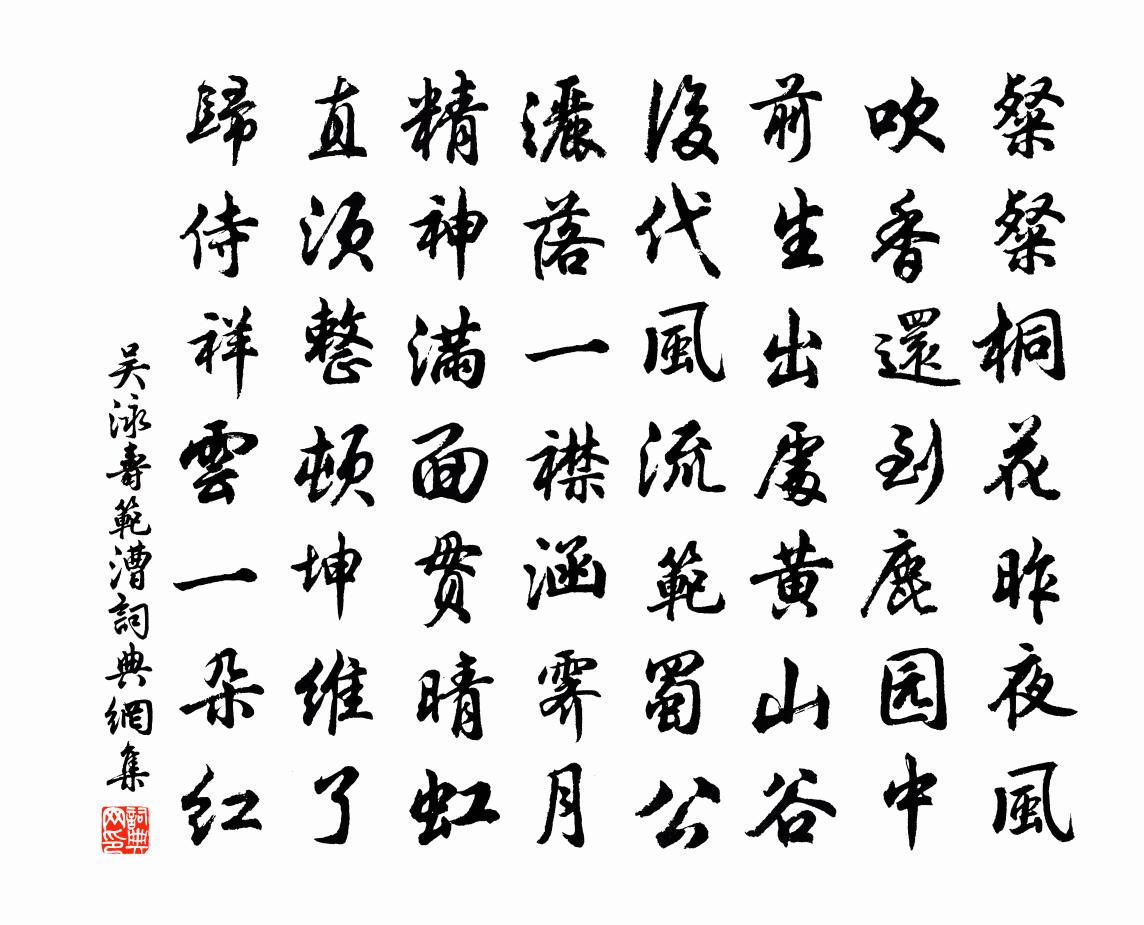 粲粲桐花昨夜風
吹香還到鹿园中
前生出處黄山谷
後代風流範蜀公
灑落一襟涵霽月
精神滿面贯晴虹
直須整頓坤維了
歸侍祥雲一朵红
吴泳壽範漕詞典網集
詞典
网印